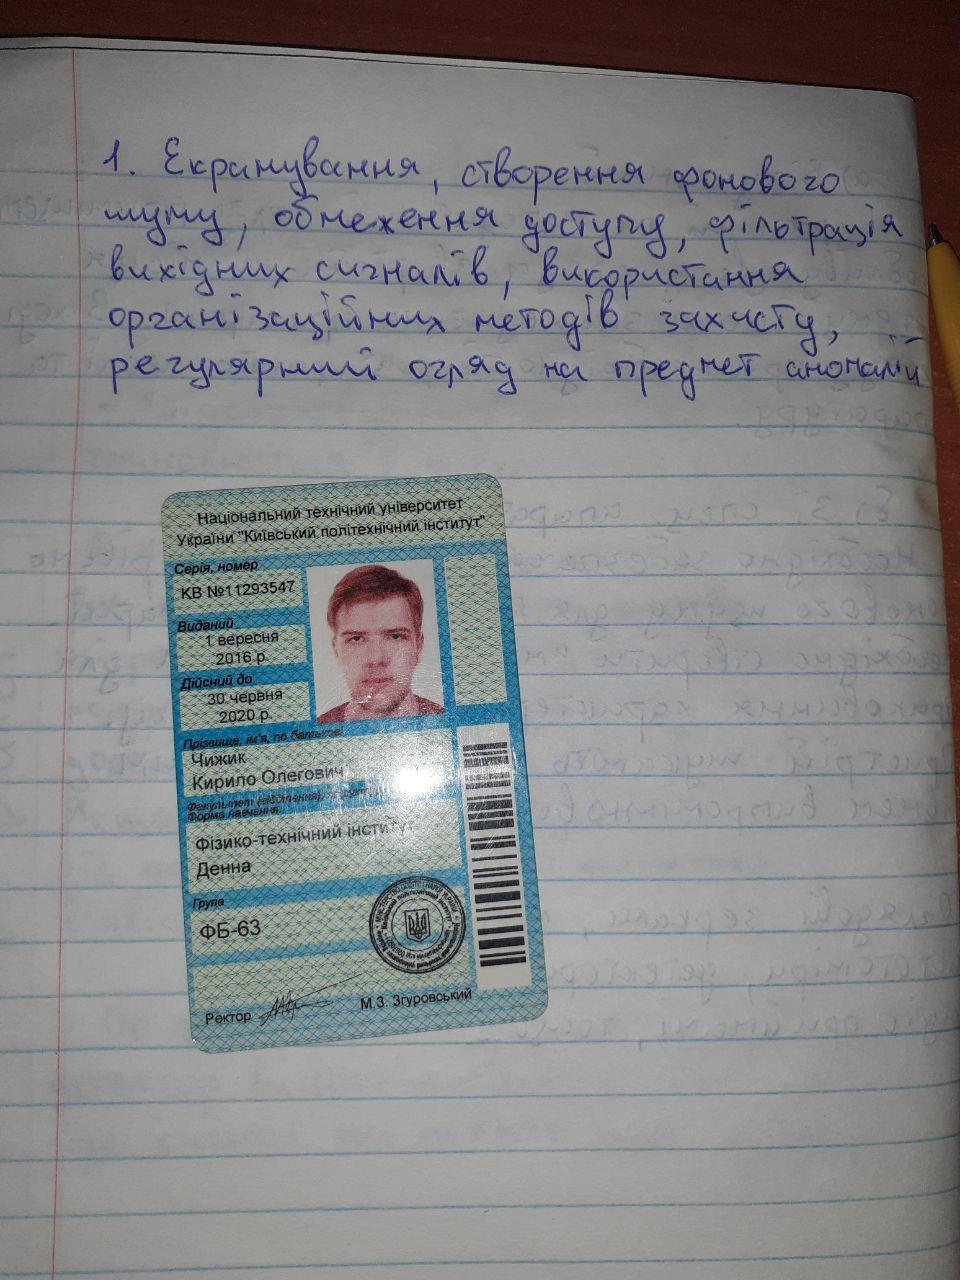 1. Екранування, створення фонового
шуму, обмеження доступу, фільтрація
вихідних сигналів, використання
організаційних методів захисту,
регулярний огляд на предмет аномалій
Національний технічний університет
України "Київський політехнічний інститут"
Серія, номер
КВ №11293547
Виданий
1 вересня
2016 р.
Дійсний до
30 червня
2020 р.
Прізвище, ім'я, по батькові
Чижик
Кирило Олегович
Факультет
Форма навчання
Фізико-технічний інститут
Денна
Група
ФБ-63
Ректор
М.З. Згуровський